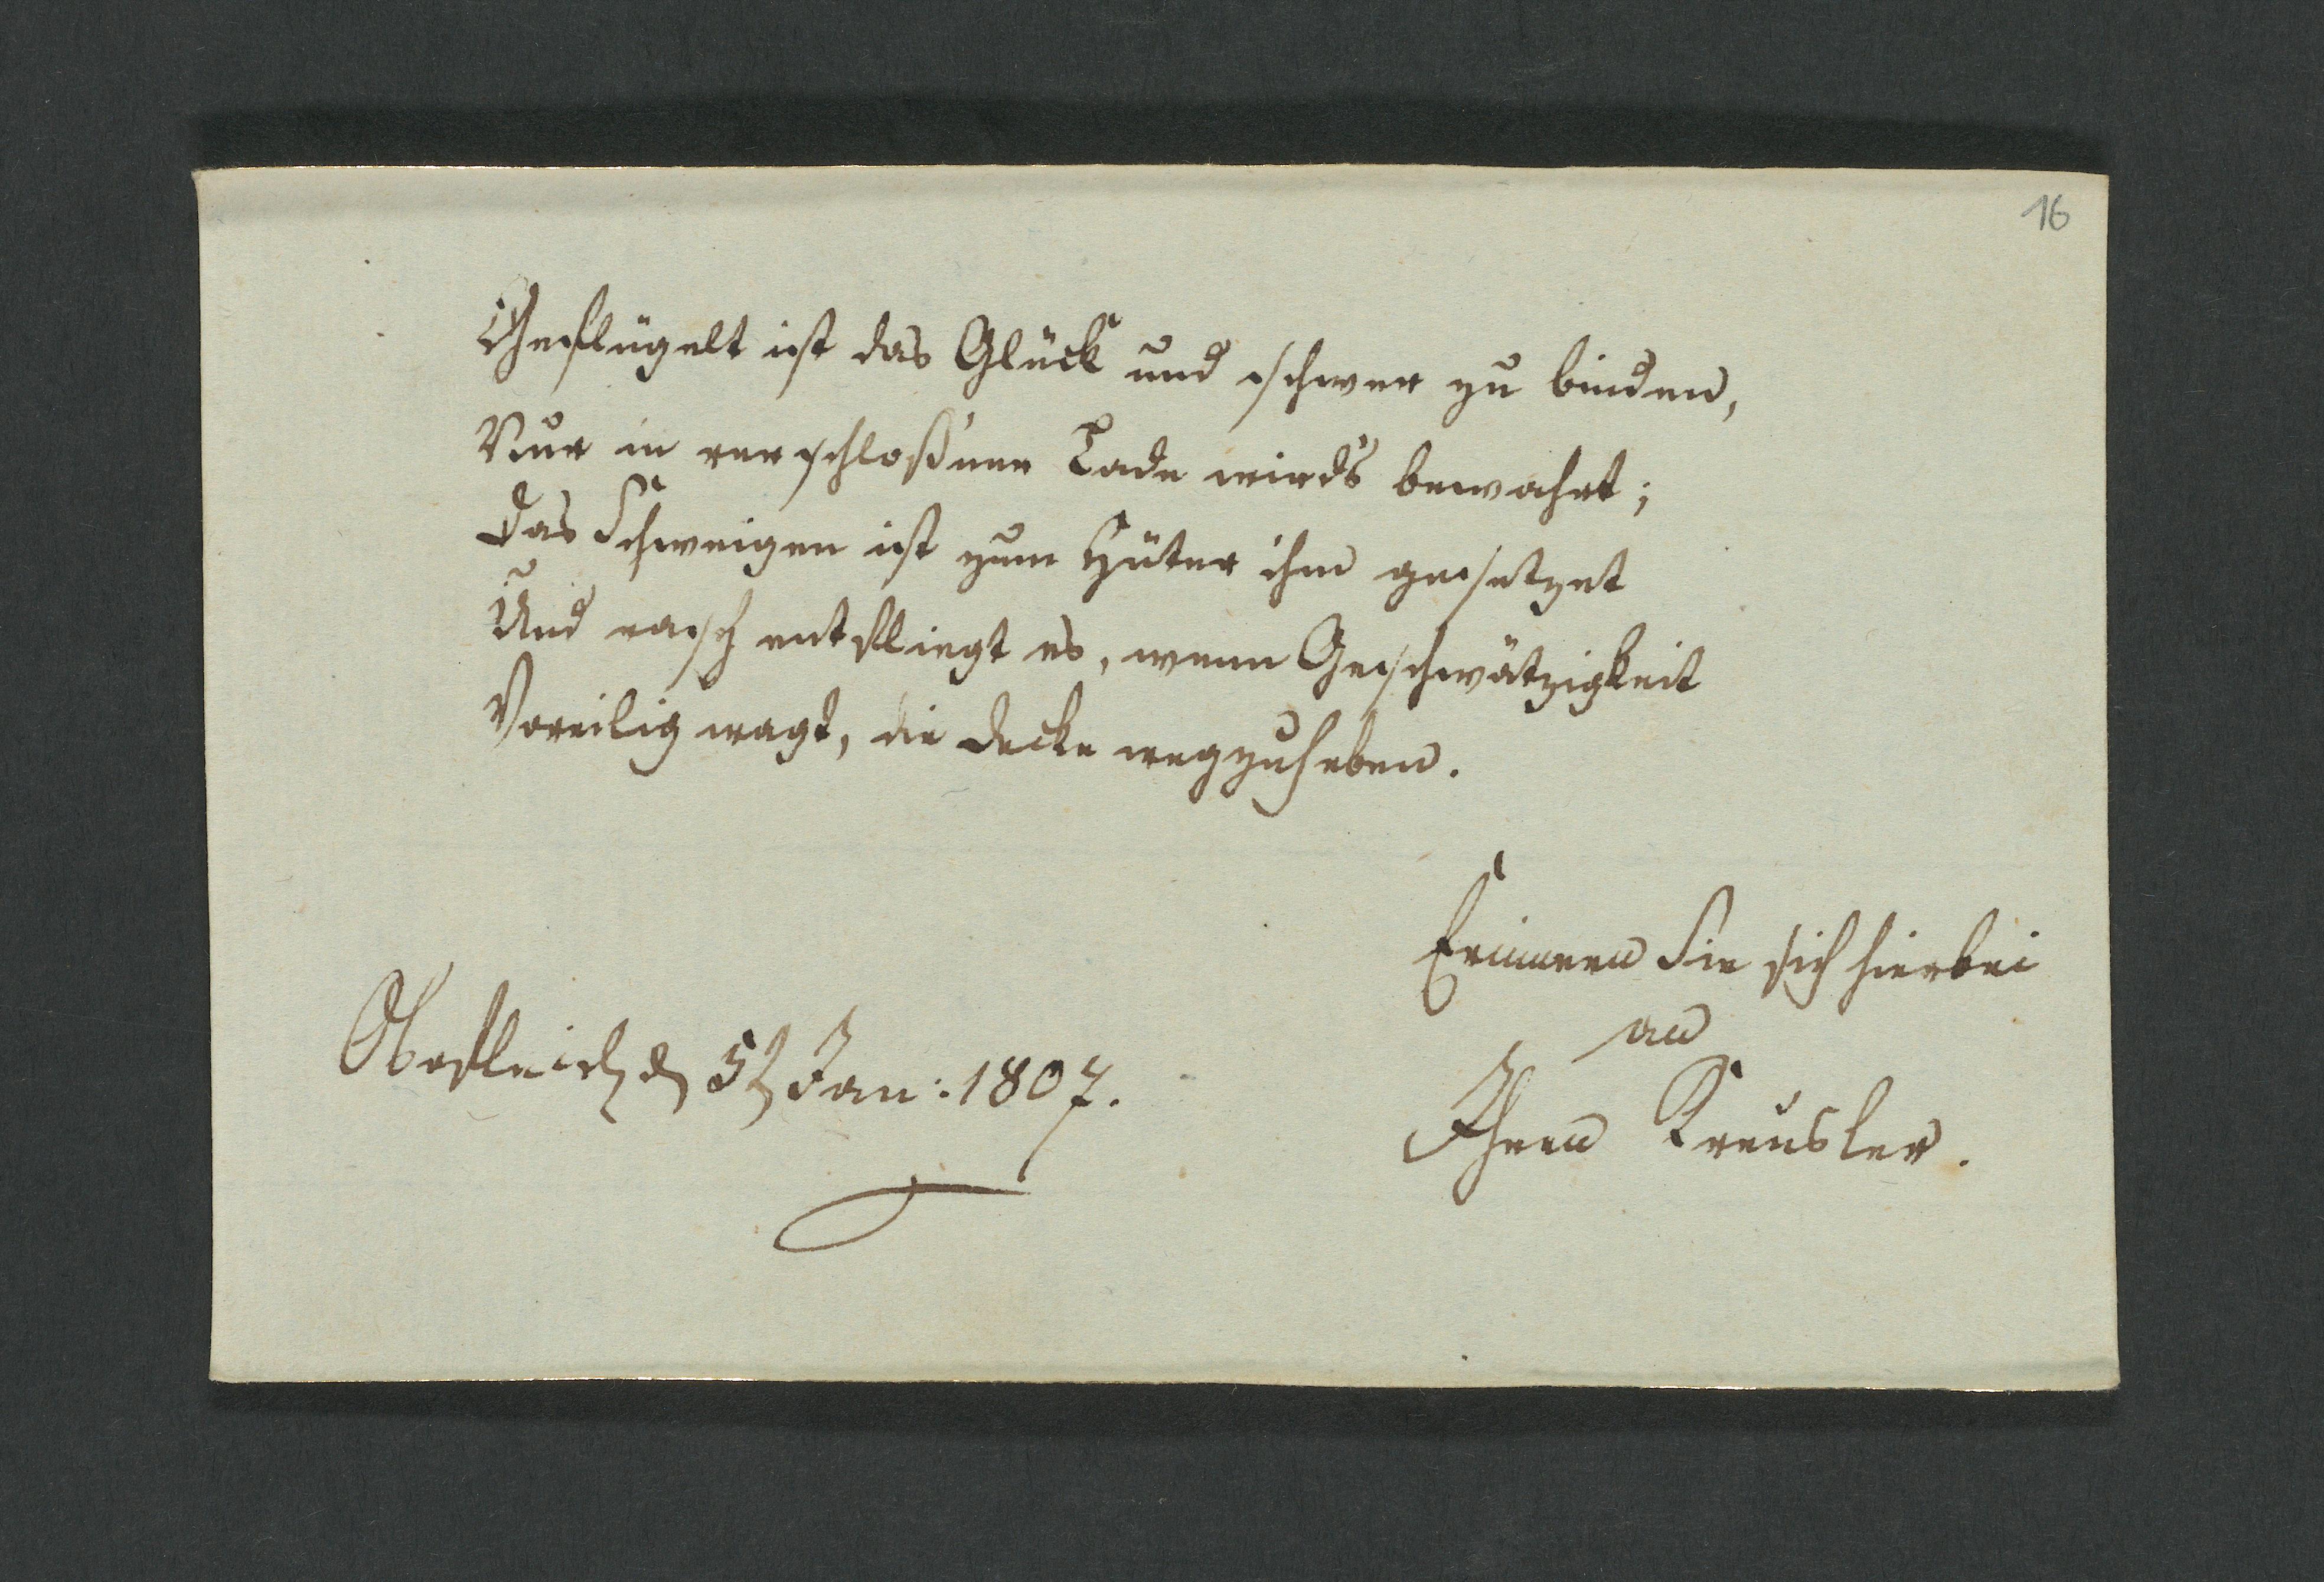 16
Geflügelt ist das Glück und schwer zu binden,
Nur in verschloßner Lade wird's bewahrt;
Das Schweigen ist zum Hüter ihm gesetzet
Und rasch entfliegt es, wenn Geschwätzigkeit
Voreilig wagt, die Decke wegzuheben.
Erinnern Sie sich hierbei
an
Ihren Kreusler.
d 5t Jan: 1807.